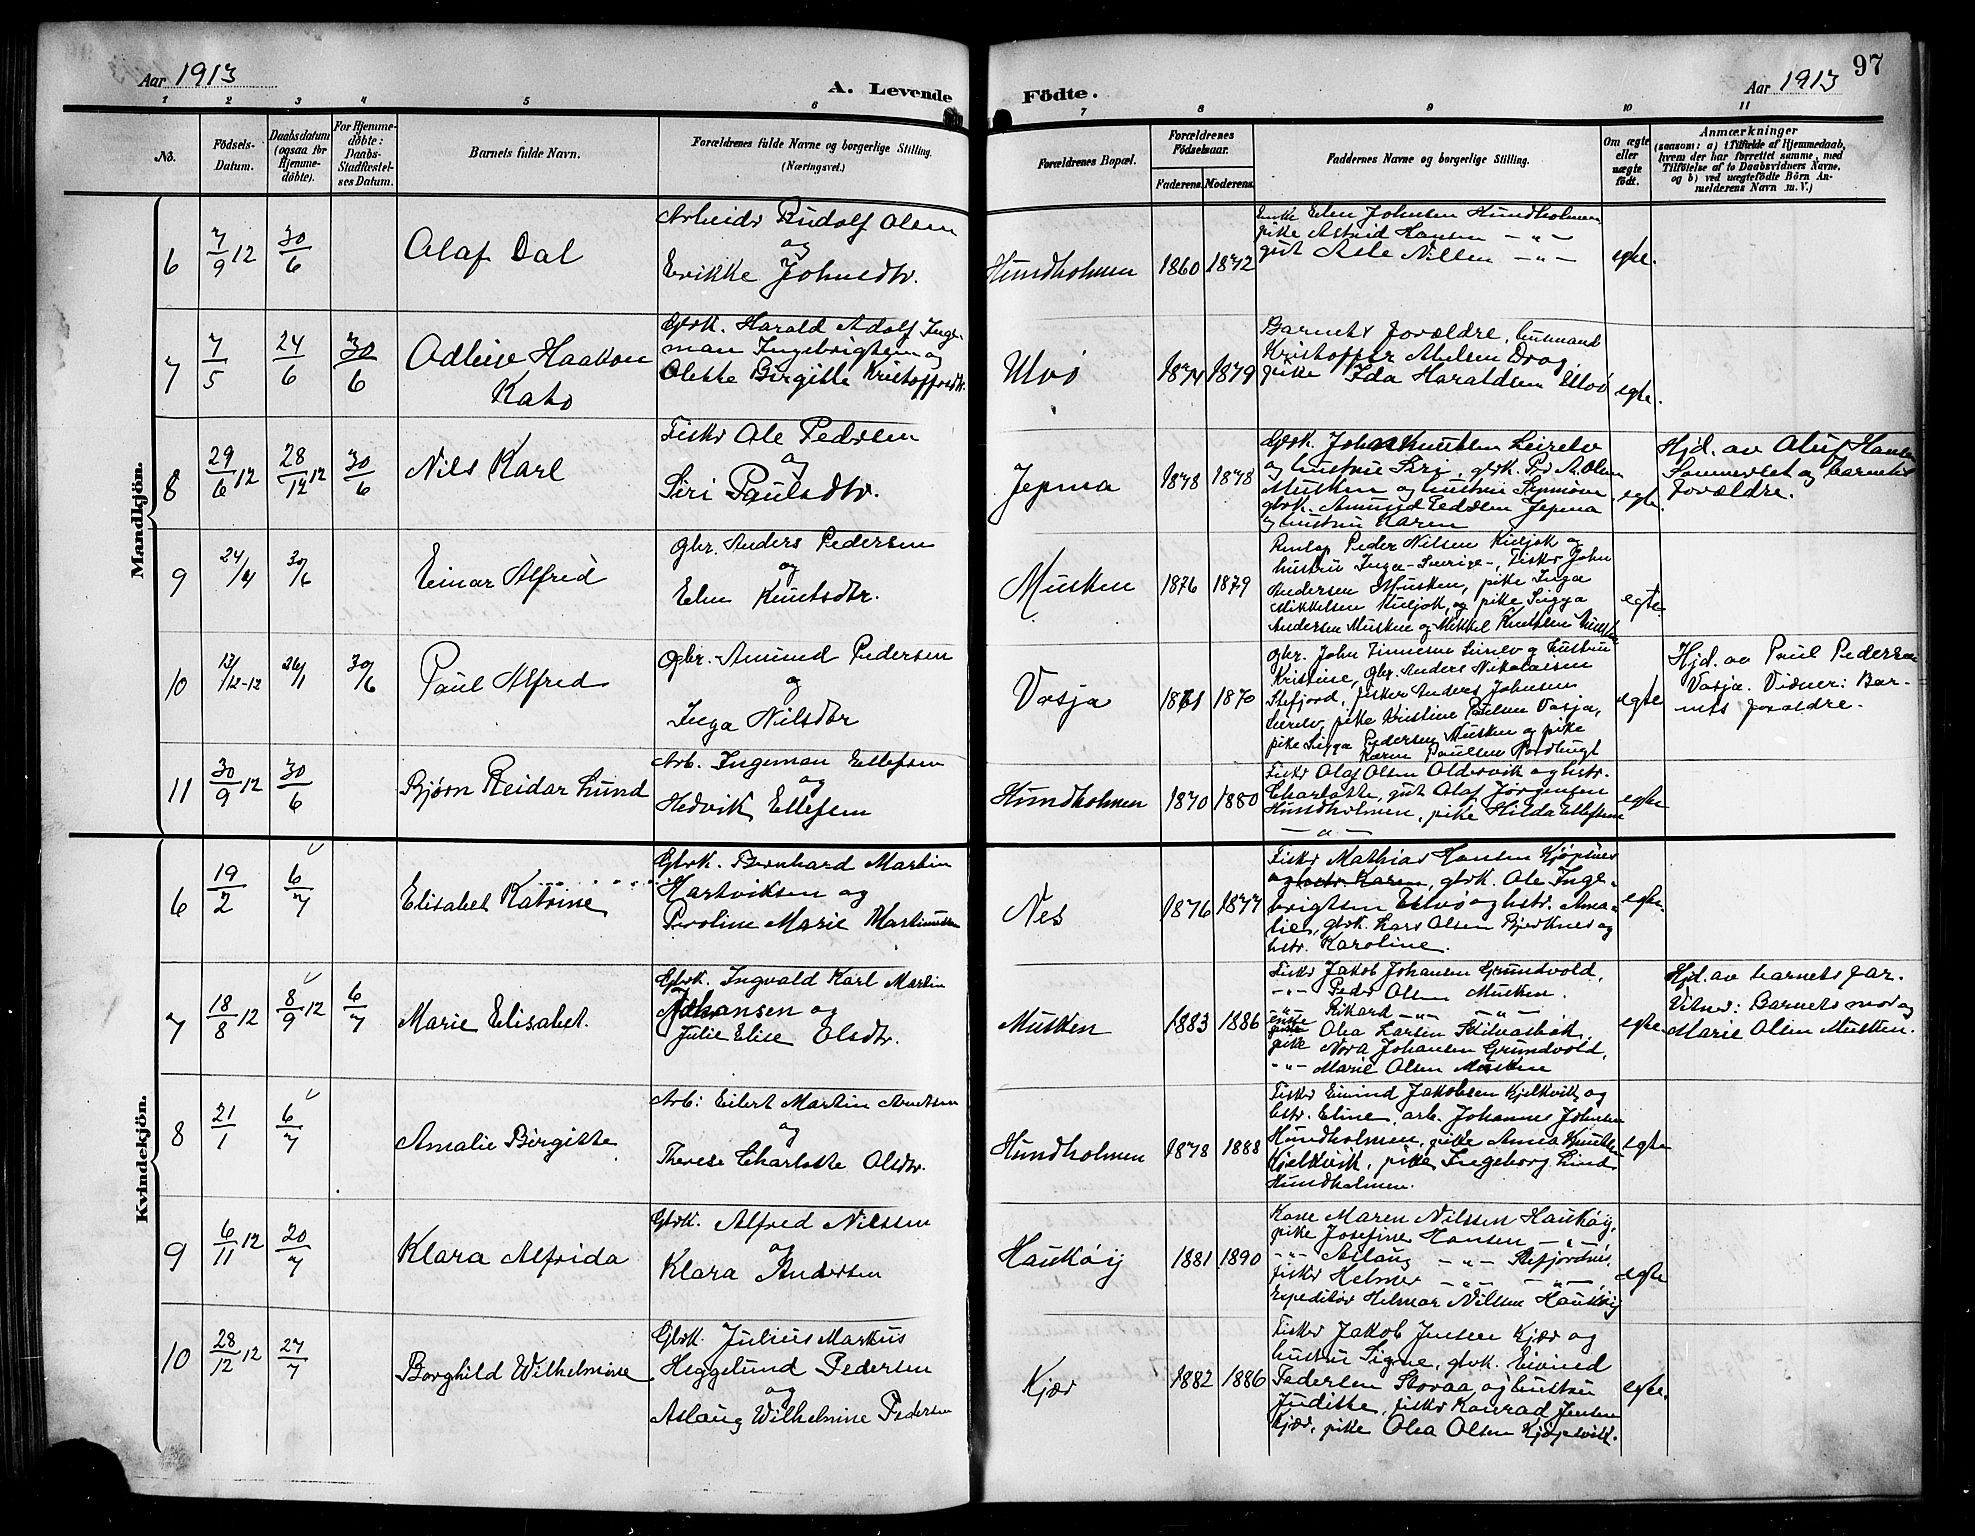 97
Aar 1913
A. Levende Födte.
Aar 1913
1 2 3 4 5 6 7 8 9 10 11
No.
Födsels-Datum.
Daabsdatum (ogsaa for Hjemme-döbte).
For Hjemme-döbte: Daabs-Stadfæstel-ses Datum.
Barnets fulde Navn.
Forældrenes fulde Navne og borgerlige Stilling. (Næringsvei.)
Forældrenes Bopæl.
Forældrenes Födselsaar.
Faderens. Moderens.
Faddernes Navne og borgerlige Stilling.
Om ægte eller uægte födt.
Anmærkninger
(saasom: a) i Tilfælde af Hjemmedaab, hvem der har forrettet samme, med Tilföielse af to Daabsvidners Navne, og b) ved uægtefödte Börn Anmelderens Navn m. V.)
Mandkjön.
6 7/9 12 30/6 Olaf Dal
Arbeider Rudolf Olsen
og
Erikke Johnsdtr.
Hundholmen 1860 1872
Enke Elen Johnsen Hundholmen
pike Astrid Hansen — " —
gut Asle Nilsen — " —
egte.
7 7/5 24/6 30/6
Haakon
Kato
Gbrk. Harald Adolf Inge-
man Ingebrigtsen og
Olette Birgitte Kristoffersdtr.
Ulvö 1874 1879
Barnets forældre, 
Kristoffer Abelsen Drag,
pike Ida Haraldsen Ulvö
egte.
8 29/6 12 28/12 12 30/6 Nils Karl
Fisker Ole Pedersen
og
Siri Paulsdtr.
Jepma 1878 1878
Gbrk. John Knutsen Leirelv
og hustru Siri, gbrk. Per A. Olsen
Musken og hustru
gbrk. Amund Pedersen Jepma
og hustru Karen
egte.
Hjd. av Oluf Hansen
Sommerset og barnets
forældre.
9 24/4 30/6 Einar Alfred
Gbr. Anders Pedersen
og
Elen Knutsdtr.
Musken 1876 1879
Peder Nilsen Kieljok og
hustru Inga - Sverige -, Fisker John
Andersen Musken, pike Inga
Mikkelsen Kieljok, og pike Sigga
Andersen Musken og Mikkel Knutsen
egte.
10 13/12-12 26/1 30/6 Paul Alfred
Gbr. Amund Pedersen
og
Inga Nilsdtr
Vasja 1861 1870
Gbr. John Leirelv og hustru
Kristine, Gbr. Anders Nikolaisen
Stefjord, fisker Anders Johnsen
Leirelv, pike Kristine Paulsen Vasja,
pike Sigga Pedersen Musken og pike
Karen Paulsen Nordbugt
egte
Hjd. av Paul Pedersen
Vasja. Vidner: Bar-
nets forældre.
11 30/9 12 30/6 Bjørn Reidar Lund
Arb. Ingeman Ellefsen
og
Hedvik Ellefsen
Hundholmen 1870 1880
Fisker Olaf Olsen Oldervik og hstr.
Charlotte, gut Olaf Jørgensen
Hundholmen, pike Hilda Ellefsen
— " —
egte
Kvindekjön.
6 19/2 6/7 Elisabet Katrine
Gbrk. Bernhard Martin
Hartviksen og
Peroline Marie Martinusen
Nes 1876 1877
Fisker Mathias Hansen Kjøpsnes
og hstr. Karen, gbrk. Ole Inge-
brigtsen Ulvö og hstr. Ama-
lie, gbrk. Lars Olsen Bjerknes og
hstr. Karoline.
egte.
7 18/8 12 8/9 12 6/7 Marie Elisabet.
Gbrk. Ingvald Karl Martin
Johansen og
Julie Elise Olsdtr.
Musken 1883 1886
Fisker Jakob Johansen Grundvold,
— " — Peder Olsen Musken.
— " — Rikard — " — — " —
Olea Larsen
pike Nora Johansen Grundvold,
— " — Marie Olsen Musken
egte.
Hjd. av barnets far.
Vitner: Barnets mor og
Marie Olsen Musken.
8 21/1 6/7 Amalie Birgitte
Arb: Eilert Martin Arntsen
og
Therese Charlotte Olsdtr.
Hundholmen 1878 1888
Fisker Eivind Jakobsen Kjelkvik og
hstr. Eline, arb. Johannes Johnsen
Hundholmen, pike Anna Knutsen
Kjelkvik, pike Ingeborg Lind
Hundholmen.
egte
9 6/11 12 20/7 Klara Alfrida
Gbrk. Alfred Nilssen
og
Klara Andersen
Haukøij 1881 1890
Kone Maren Nilssen Haukøij,
pike Josefine Hansen — " —
— " — Aslaug — " — Stefjordnes,
fisker Helmer — " — — " —,
Expeditör Helmar Nilssen Haukøij
egte
10 28/12 12 27/7 Borghild Wilhelmine
Gbrk. Julius Markus
Heggelund Pedersen
og
Aslaug Wilhelmine Pedersen
Kjær 1882 1886
Fisker Jakob Jensen Kjær og
hustru Signe, gbrk. Eivind
Pedersen Storaa og hustru
Juditte, fisker Konrad Jensen
Kjær, pike Olea Olsen Kjøpsvik.
egte.